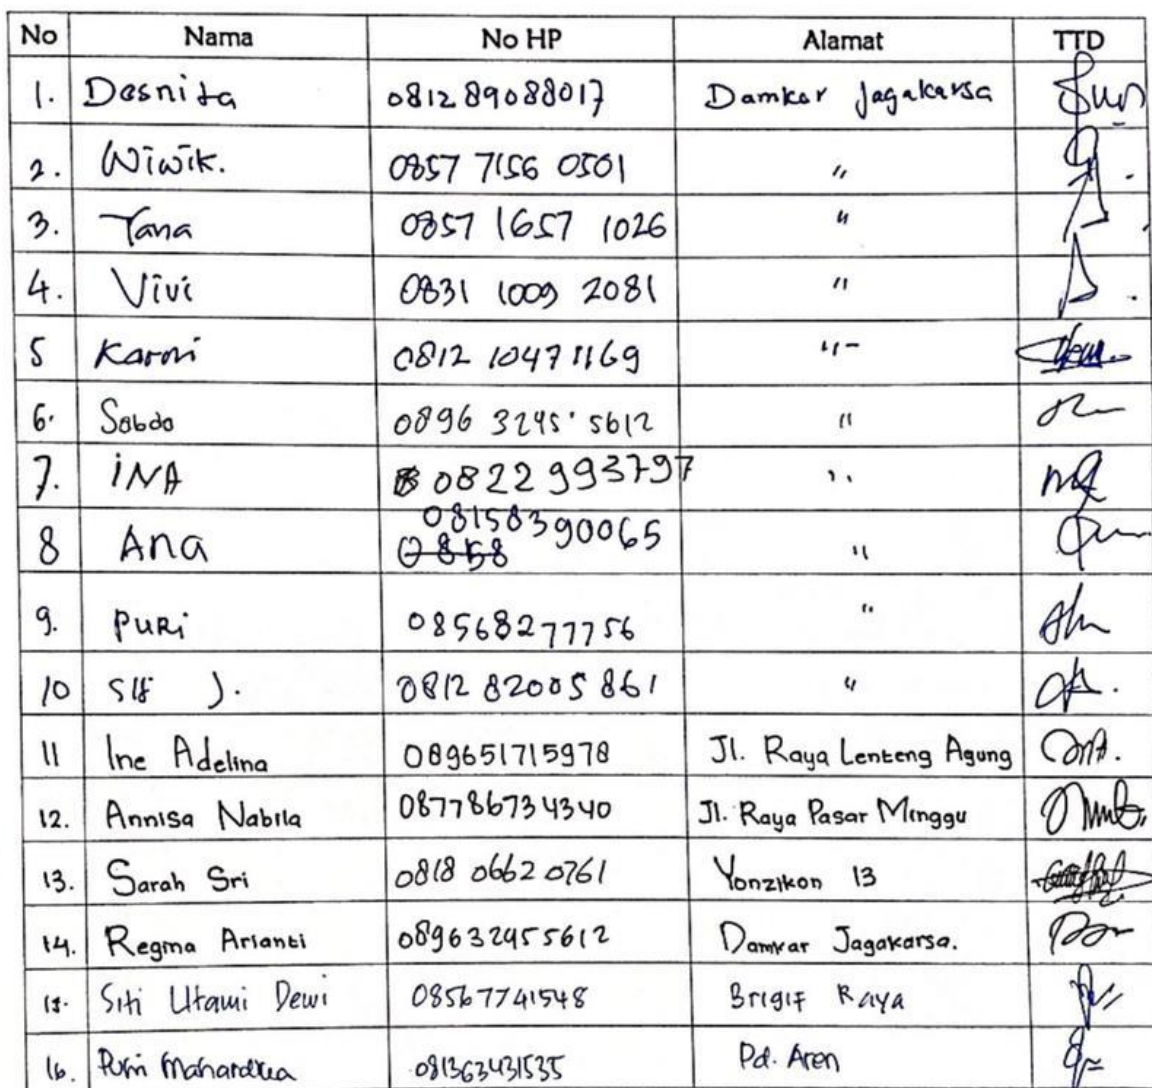 No Nama No HP Alamat TTD
1. Desnita 081289088017 Damkar Jagakarsa
2. Wiwik. 0857 7156 0501 "
3. Yana 0857 1657 1026 "
4. Vivi 0831 1009 2081 "
5 Karni 0812 10471169 " -
6. Sabdo 0896 3245 5612 "
7. INA 0822993797 "
8 Ana 08158390065 "
0858
9. PURi 08568277756 "
10 J. 0812 82005 861 "
11 Ine Adelina 089651715978 Jl. Raya Lenteng Agung
12. Annisa Nabila 087786734340 Jl. Raya Pasar Minggu
13. Sarah Sri 0818 0662 0761 Yonzikon 13
14. Regina Arianti 089632455612 Damkar Jagakarsa.
15. Siti Utami Dewi 08567741548 Brigif Raya
16. Mahardika 081363431535 Pd. Aren